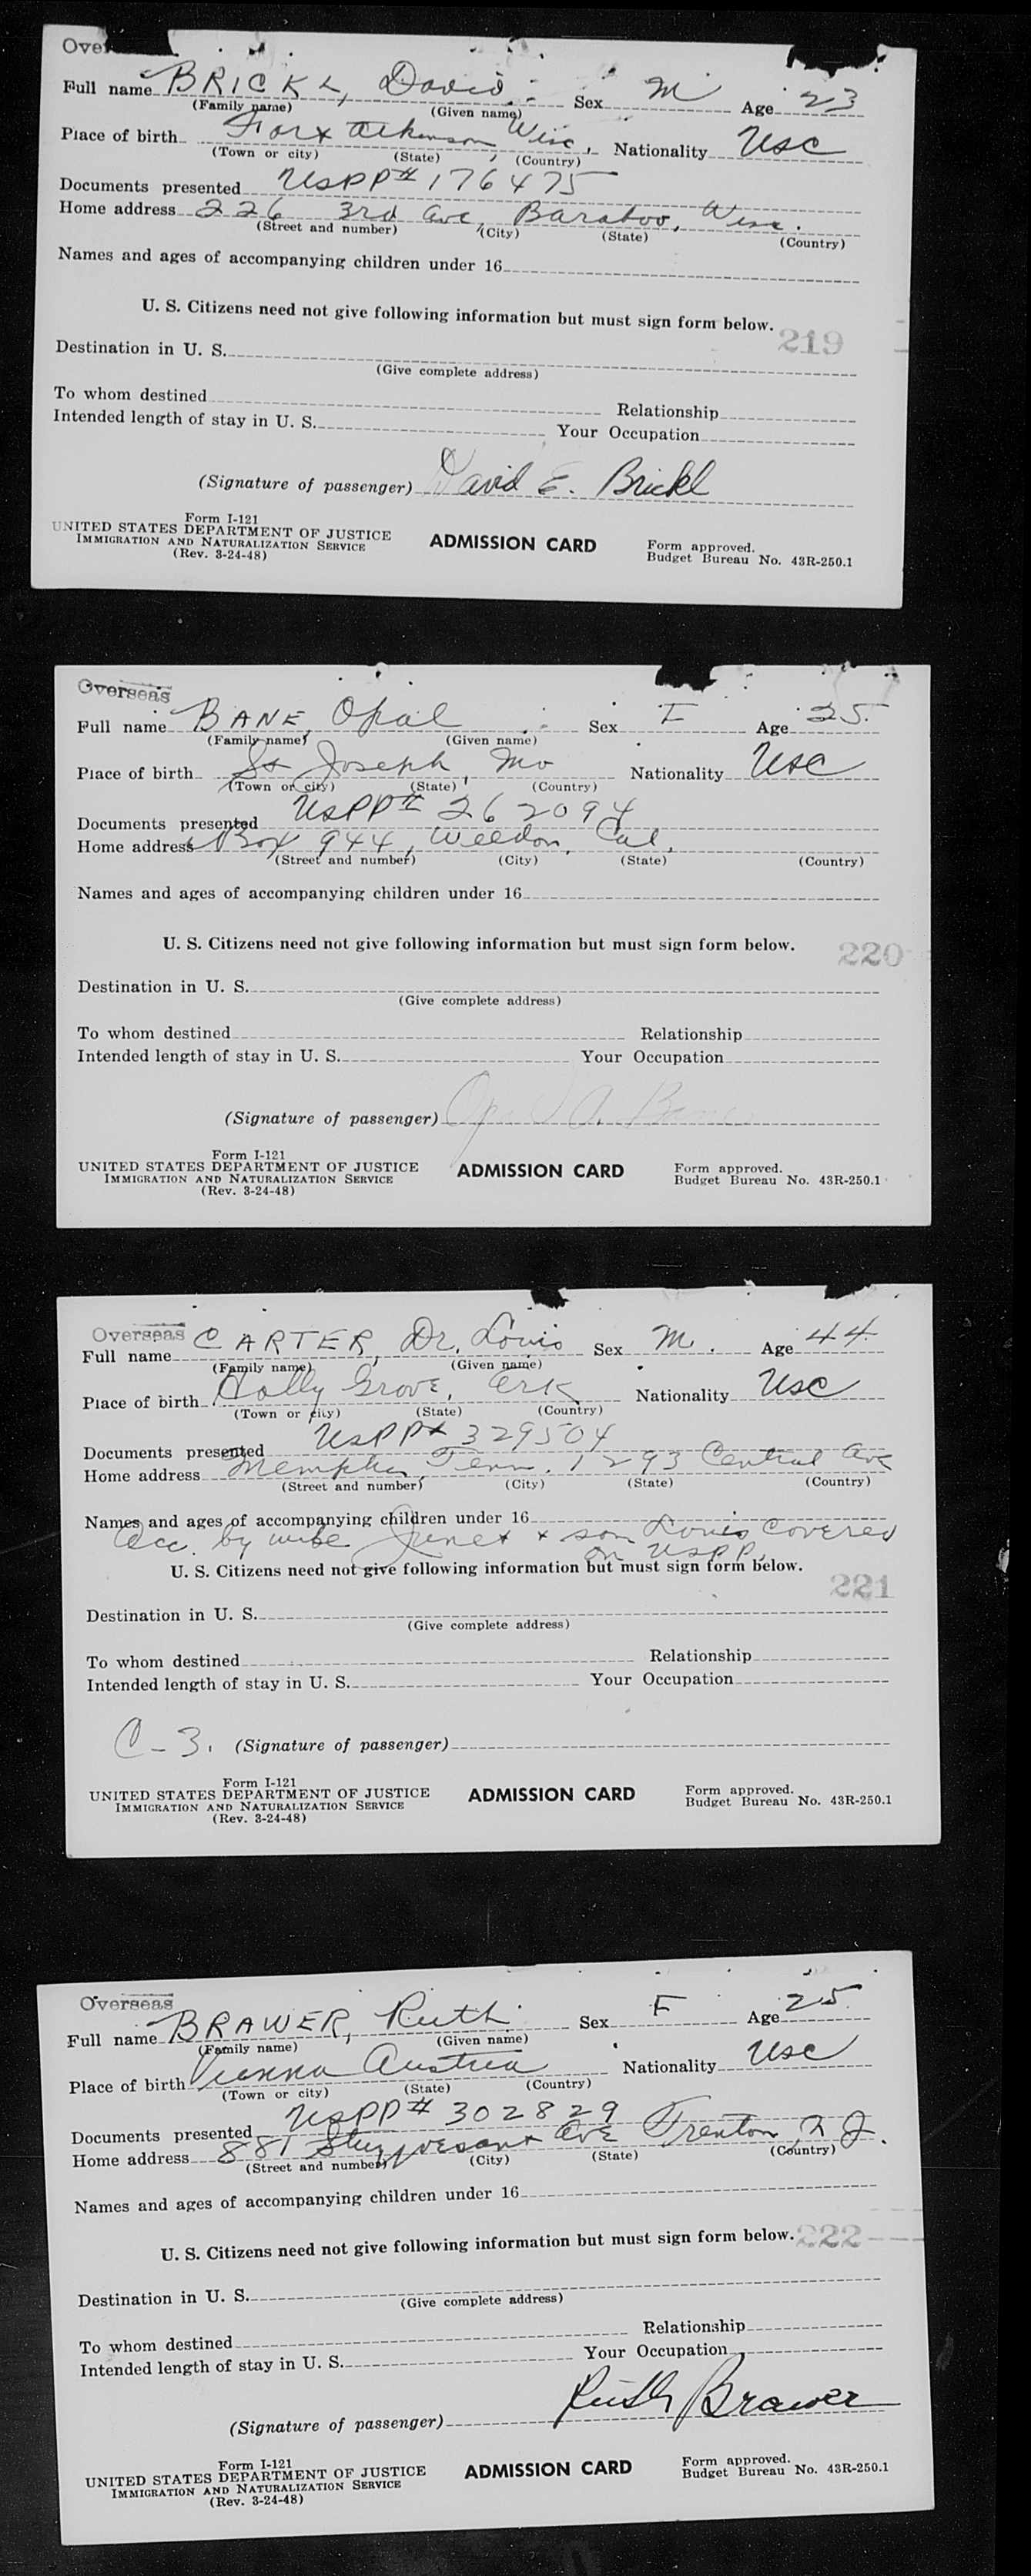 Over
Full name BRICKL, David Sex M Age 23
(Family name) (Given name)
Place of birth Fort Atkinson Wisc, Nationality USC
(Town or city) (State) (Country)
Documents presented USPP# 176475
Home address 226 3rd Ave, Baraboo, Wisc.
(Street and number) (City) (State) (Country)
Names and ages of accompanying children under 16
U. S. Citizens need not give following information but must sign form below.
219
Destination in U. S.
(Give complete address)
To whom destined Relationship
Intended length of stay in U. S. Your Occupation
(Signature of passenger) David E. Brickl
Form I-121
UNITED STATES DEPARTMENT OF JUSTICE
IMMIGRATION AND NATURALIZATION SERVICE
(Rev. 3-24-48)
ADMISSION CARD
Form approved.
Budget Bureau No. 43R-250.1
Overseas
Full name BANE, Opal Sex F Age 25
(Family name) (Given name)
Place of birth St Joseph, Mo Nationality USC
(Town or city) (State) (Country)
Documents presented USPP# 262094
Home address Box 944, Weedon, Cal,
(Street and number) (City) (State) (Country)
Names and ages of accompanying children under 16
U. S. Citizens need not give following information but must sign form below.
220
Destination in U. S.
(Give complete address)
To whom destined Relationship
Intended length of stay in U. S. Your Occupation
(Signature of passenger) Opal A. Bane
Form I-121
UNITED STATES DEPARTMENT OF JUSTICE
IMMIGRATION AND NATURALIZATION SERVICE
(Rev. 3-24-48)
ADMISSION CARD
Form approved.
Budget Bureau No. 43R-250.1
Overseas
Full name CARTER, Dr. Louis Sex M. Age 44
(Family name) (Given name)
Place of birth Holly Grove, Ark Nationality USC
(Town or city) (State) (Country)
Documents presented USPP# 329504
Home address Memphis, Tenn. 1293 Central Ave
(Street and number) (City) (State) (Country)
Names and ages of accompanying children under 16
Acc. by wife June + son Louis covered
on USPP.
U. S. Citizens need not give following information but must sign form below.
221
Destination in U. S.
(Give complete address)
To whom destined Relationship
Intended length of stay in U. S. Your Occupation
C-3. (Signature of passenger)
Form I-121
UNITED STATES DEPARTMENT OF JUSTICE
IMMIGRATION AND NATURALIZATION SERVICE
(Rev. 3-24-48)
ADMISSION CARD
Form approved.
Budget Bureau No. 43R-250.1
Overseas
Full name BRAWER, Ruth Sex F Age 25
(Family name) (Given name)
Place of birth Vienna Austria Nationality USC
(Town or city) (State) (Country)
Documents presented USPP# 302829
Home address 881 Stuyvesant Ave Trenton, N J.
(Street and number) (City) (State) (Country)
Names and ages of accompanying children under 16
U. S. Citizens need not give following information but must sign form below.
222
Destination in U. S.
(Give complete address)
To whom destined Relationship
Intended length of stay in U. S. Your Occupation
(Signature of passenger) Ruth Brawer
Form I-121
UNITED STATES DEPARTMENT OF JUSTICE
IMMIGRATION AND NATURALIZATION SERVICE
(Rev. 3-24-48)
ADMISSION CARD
Form approved.
Budget Bureau No. 43R-250.1